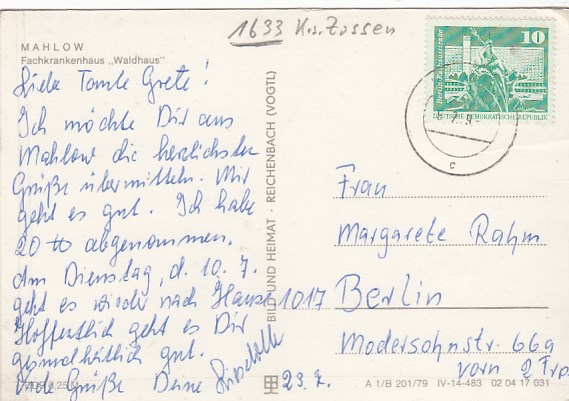 1633 Krs. Zossen
MAHLOW
Fachkrankenhaus „Waldhaus"
Liebe Tante Grete!
Ich möchte Dir aus
Mahlow die herzlichsten
Grüße übermitteln. Mir
geht es gut. Ich habe
20 ℔ abgenommen.
Am Dienstag, d. 10.7.
geht es wieder nach Hause
Hoffentlich geht es Dir
gesundheitlich gut.
Viele Grüße Deine
23.7.
BILD UND HEIMAT · REICHENBACH (VOGTL)
10
Berlin, Rathausstraße
DEUTSCHE DEMOKRATISCHE REPUBLIK
c
Frau
Margarete Rahm
1017 Berlin
Modersohnstr. 66a
vorn 2 Trp.
A 1/B 201/79 IV-14-483 02 04 17 031